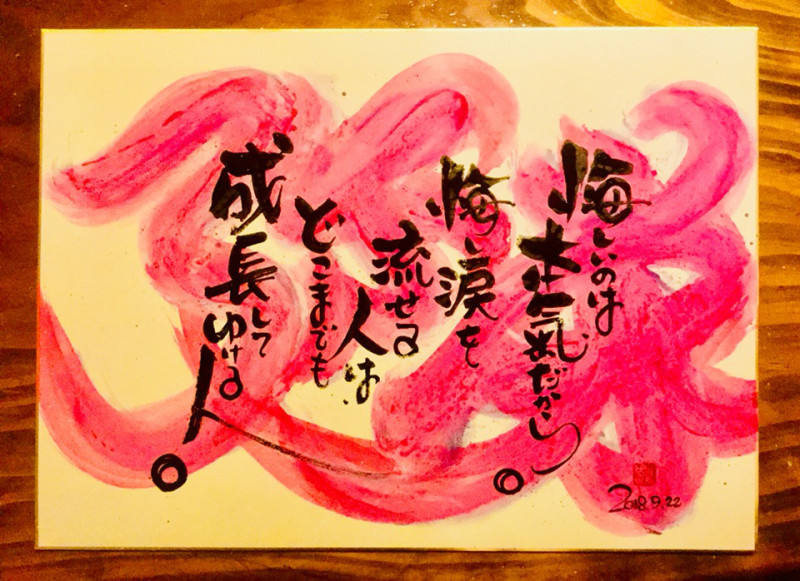 悔しいのは
本気だから。
悔し涙を
流せる
人は
どこまでも
成長して
ゆける
人。
2018.9.22